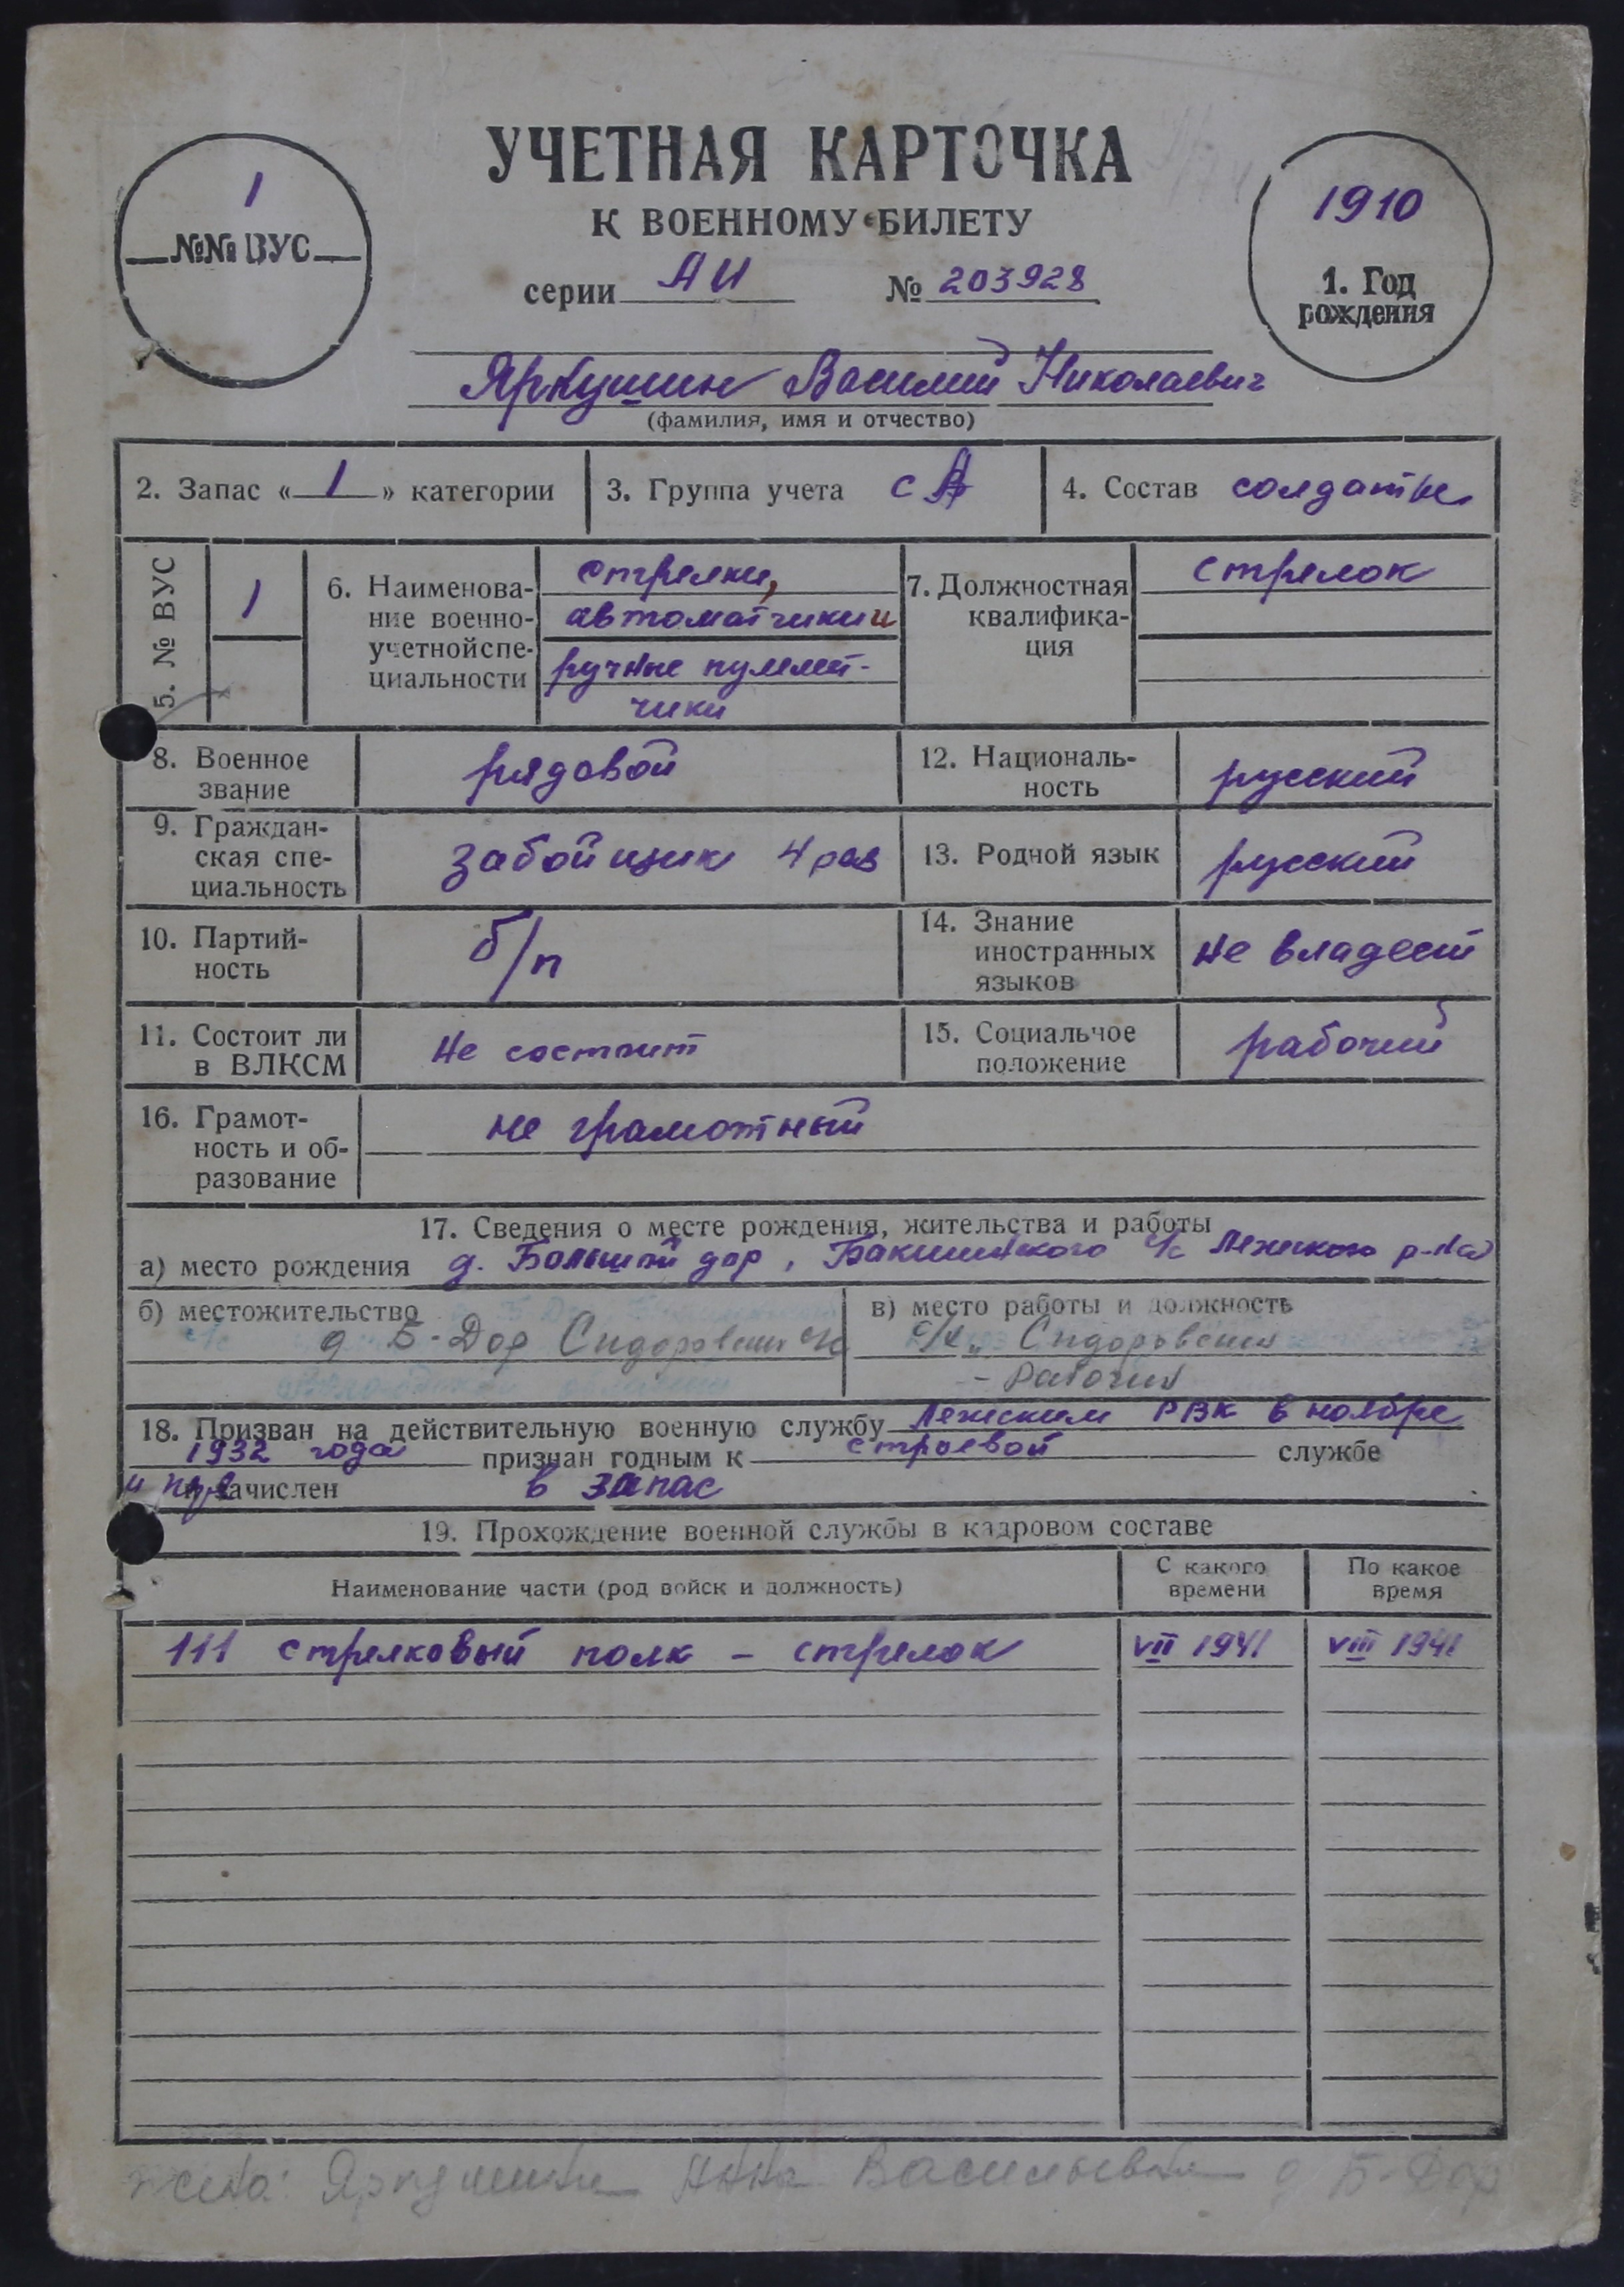 УЧЕТНАЯ КАРТОЧКА
К ВОЕННОМУ БИЛЕТУ
серии АИ № 203928
1
№№ ВУС
1910
1. Год
рождения
Яркушин Василий Николаевич
(фамилия, имя и отчество)
2. Запас « 1 » категории
3. Группа учета СА
4. Состав солдаты
5. № ВУС
1
6. Наименова-
ние военно-
учетной спе-
циальности
стрелки,
автоматчики и
ручные пулемет-
чики
7. Должностная
квалифика-
ция
стрелок
8. Военное
звание
рядовой
12. Националь-
ность
русский
9. Граждан-
ская спе-
циальность
забойщик 4 раз
13. Родной язык
русский
10. Партий-
ность
б/п
14. Знание
иностранных
языков
не владеет
11. Состоит ли
в ВЛКСМ
не состоит
15. Социальное
положение
рабочий
16. Грамот-
ность и об-
разование
не грамотный
17. Сведения о месте рождения, жительства и работы
а) место рождения д. Большой дор, Бакшинского с/с Лежского р-на
б) местожительство
д Б-Дор Сидоровский с/с
в) место работы и должность
Сидоровский
- рабочий
18. Призван на действительную военную службу Лежским РВК в ноябре
1932 года признан годным к строевой службе
и зачислен в запас
19. Прохождение военной службы в кадровом составе
Наименование части (род войск и должность)
С какого
времени
По какое
время
111 стрелковый полк - стрелок VII 1941 VIII 1941
жена: Яркушина Анна Васильевна д Б-Дор